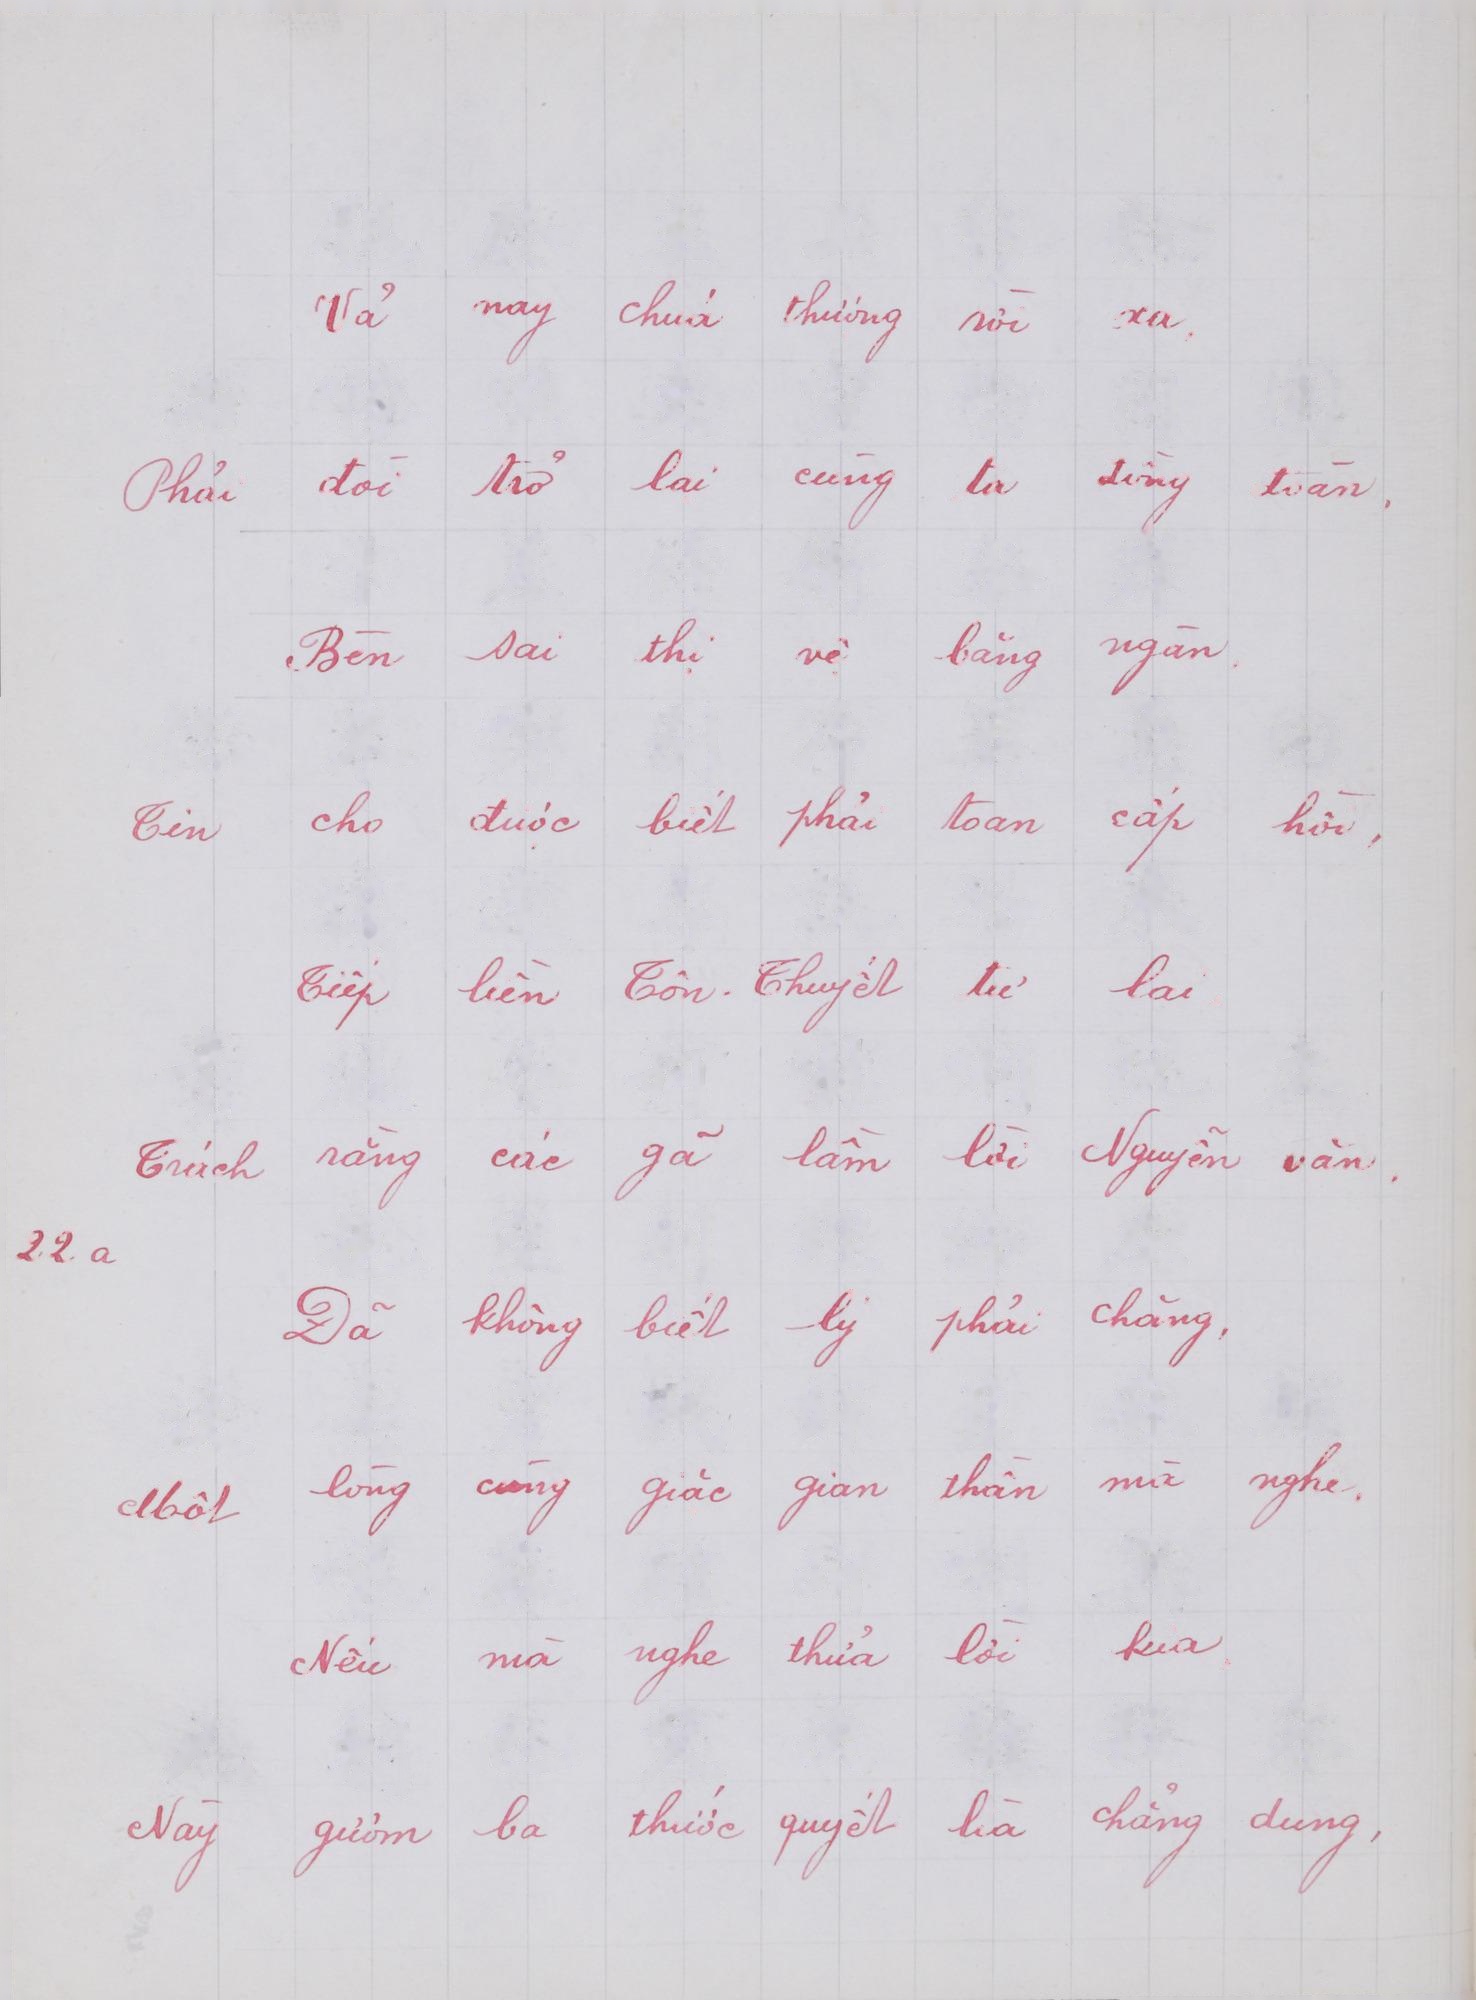 Vả nay chuá thương rồi xa.
Phải đòi trở lai cùng ta tòng toàn,
Bèn sai thị vệ băng ngàn.
Tin cho được biết phải toan cấp hồi,
Tiếp liền Tôn-Thuyết tư lai
Trách rằng các gã lầm lời Nguyễn văn.
22. a
Dã không biết lý phải chăng,
Một lòng cùng giặc gian thần mà nghe.
Nếu mà nghe thửa lời kua
Này gươm ba thước quyết hà chẳng dung,